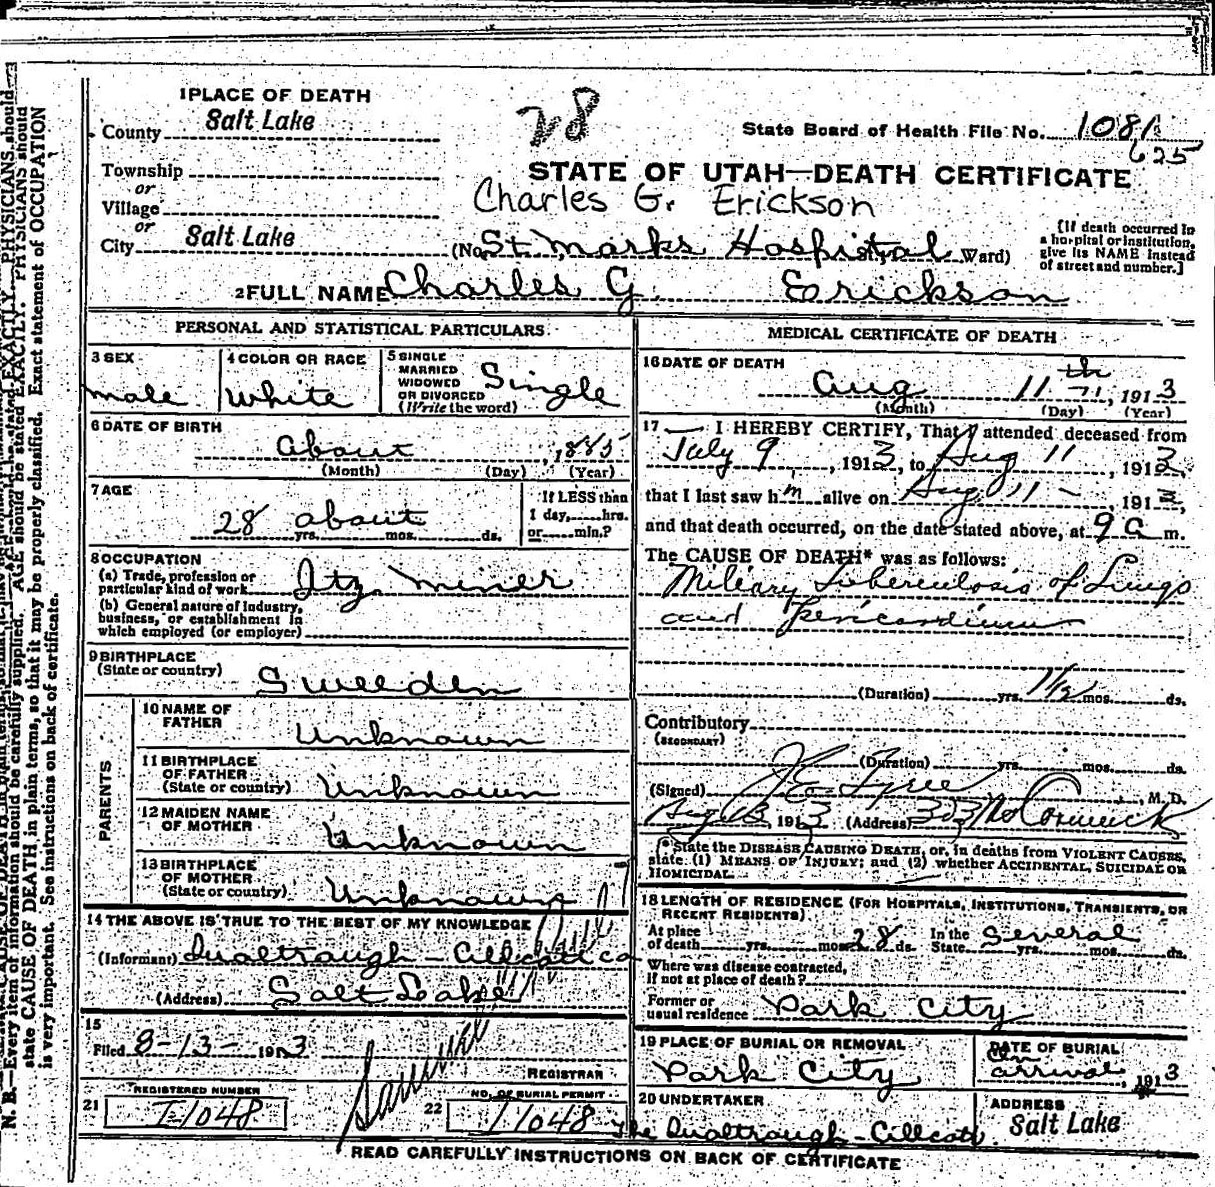 1 PLACE OF DEATH
County Salt Lake
28
State Board of Health File No. 1081
625
Township
or
Village
or
City Salt Lake
STATE OF UTAH—DEATH CERTIFICATE
Charles G. Erickson
(No. St. Marks Hospital Ward)
[If death occurred in a hospital or institution, give its NAME instead of street and number.]
2 FULL NAME Charles G. Erickson
PERSONAL AND STATISTICAL PARTICULARS
3 SEX
male
4 COLOR OR RACE
White
5 SINGLE MARRIED WIDOWED OR DIVORCED (Write the word)
Single
6 DATE OF BIRTH
About , 1885
(Month) (Day) (Year)
7 AGE
28 about
yrs. mos. ds.
If LESS than 1 day, hrs. or min.?
8 OCCUPATION
(a) Trade, profession or particular kind of work
Miner
(b) General nature of industry, business, or establishment in which employed (or employer)
9 BIRTHPLACE
(State or country)
Sweeden
PARENTS
10 NAME OF FATHER
Unknown
11 BIRTHPLACE OF FATHER (State or country)
Unknown
12 MAIDEN NAME OF MOTHER
Unknown
13 BIRTHPLACE OF MOTHER (State or country)
Unknown
14 THE ABOVE IS TRUE TO THE BEST OF MY KNOWLEDGE
(Informant)
(Address) Salt Lake
15
Filed 8-13- 1913
REGISTRAR
REGISTERED NUMBER
21 I-1048
NO. OF BURIAL PERMIT
22 I 1048
MEDICAL CERTIFICATE OF DEATH
16 DATE OF DEATH
Aug 11th , 1913
(Month) (Day) (Year)
17 I HEREBY CERTIFY, That I attended deceased from
July 9 , 1913, to Aug 11 , 1913,
that I last saw h m alive on Aug 11 - , 1913,
and that death occurred, on the date stated above, at 9 a m.
The CAUSE OF DEATH* was as follows:
Miliary Tuberculosis of Lungs
and Pericardium
(Duration) yrs. 1 1/2 mos. ds.
Contributory
(SECONDARY)
(Duration) yrs. mos. ds.
(Signed) , M. D.
Aug 13, 1913 (Address) 333 McCornick
(* State the DISEASE CAUSING DEATH, or, in deaths from VIOLENT CAUSES, state (1) MEANS OF INJURY; and (2) whether ACCIDENTAL, SUICIDAL OR HOMICIDAL.
18 LENGTH OF RESIDENCE (FOR HOSPITALS, INSTITUTIONS, TRANSIENTS, OR RECENT RESIDENTS)
At place of death yrs. mos. 28 ds. In the State Several yrs. mos. ds.
Where was disease contracted, If not at place of death?
Former or usual residence Park City
19 PLACE OF BURIAL OR REMOVAL
Park City
DATE OF BURIAL
On arrival , 1913
20 UNDERTAKER
The
ADDRESS
Salt Lake
READ CAREFULLY INSTRUCTIONS ON BACK OF CERTIFICATE
N. B.—Every item of information should be carefully supplied. AGE should be stated EXACTLY. PHYSICIANS should
state CAUSE OF DEATH in plain terms, so that it may be properly classified. Exact statement of OCCUPATION
is very important. See instructions on back of certificate.